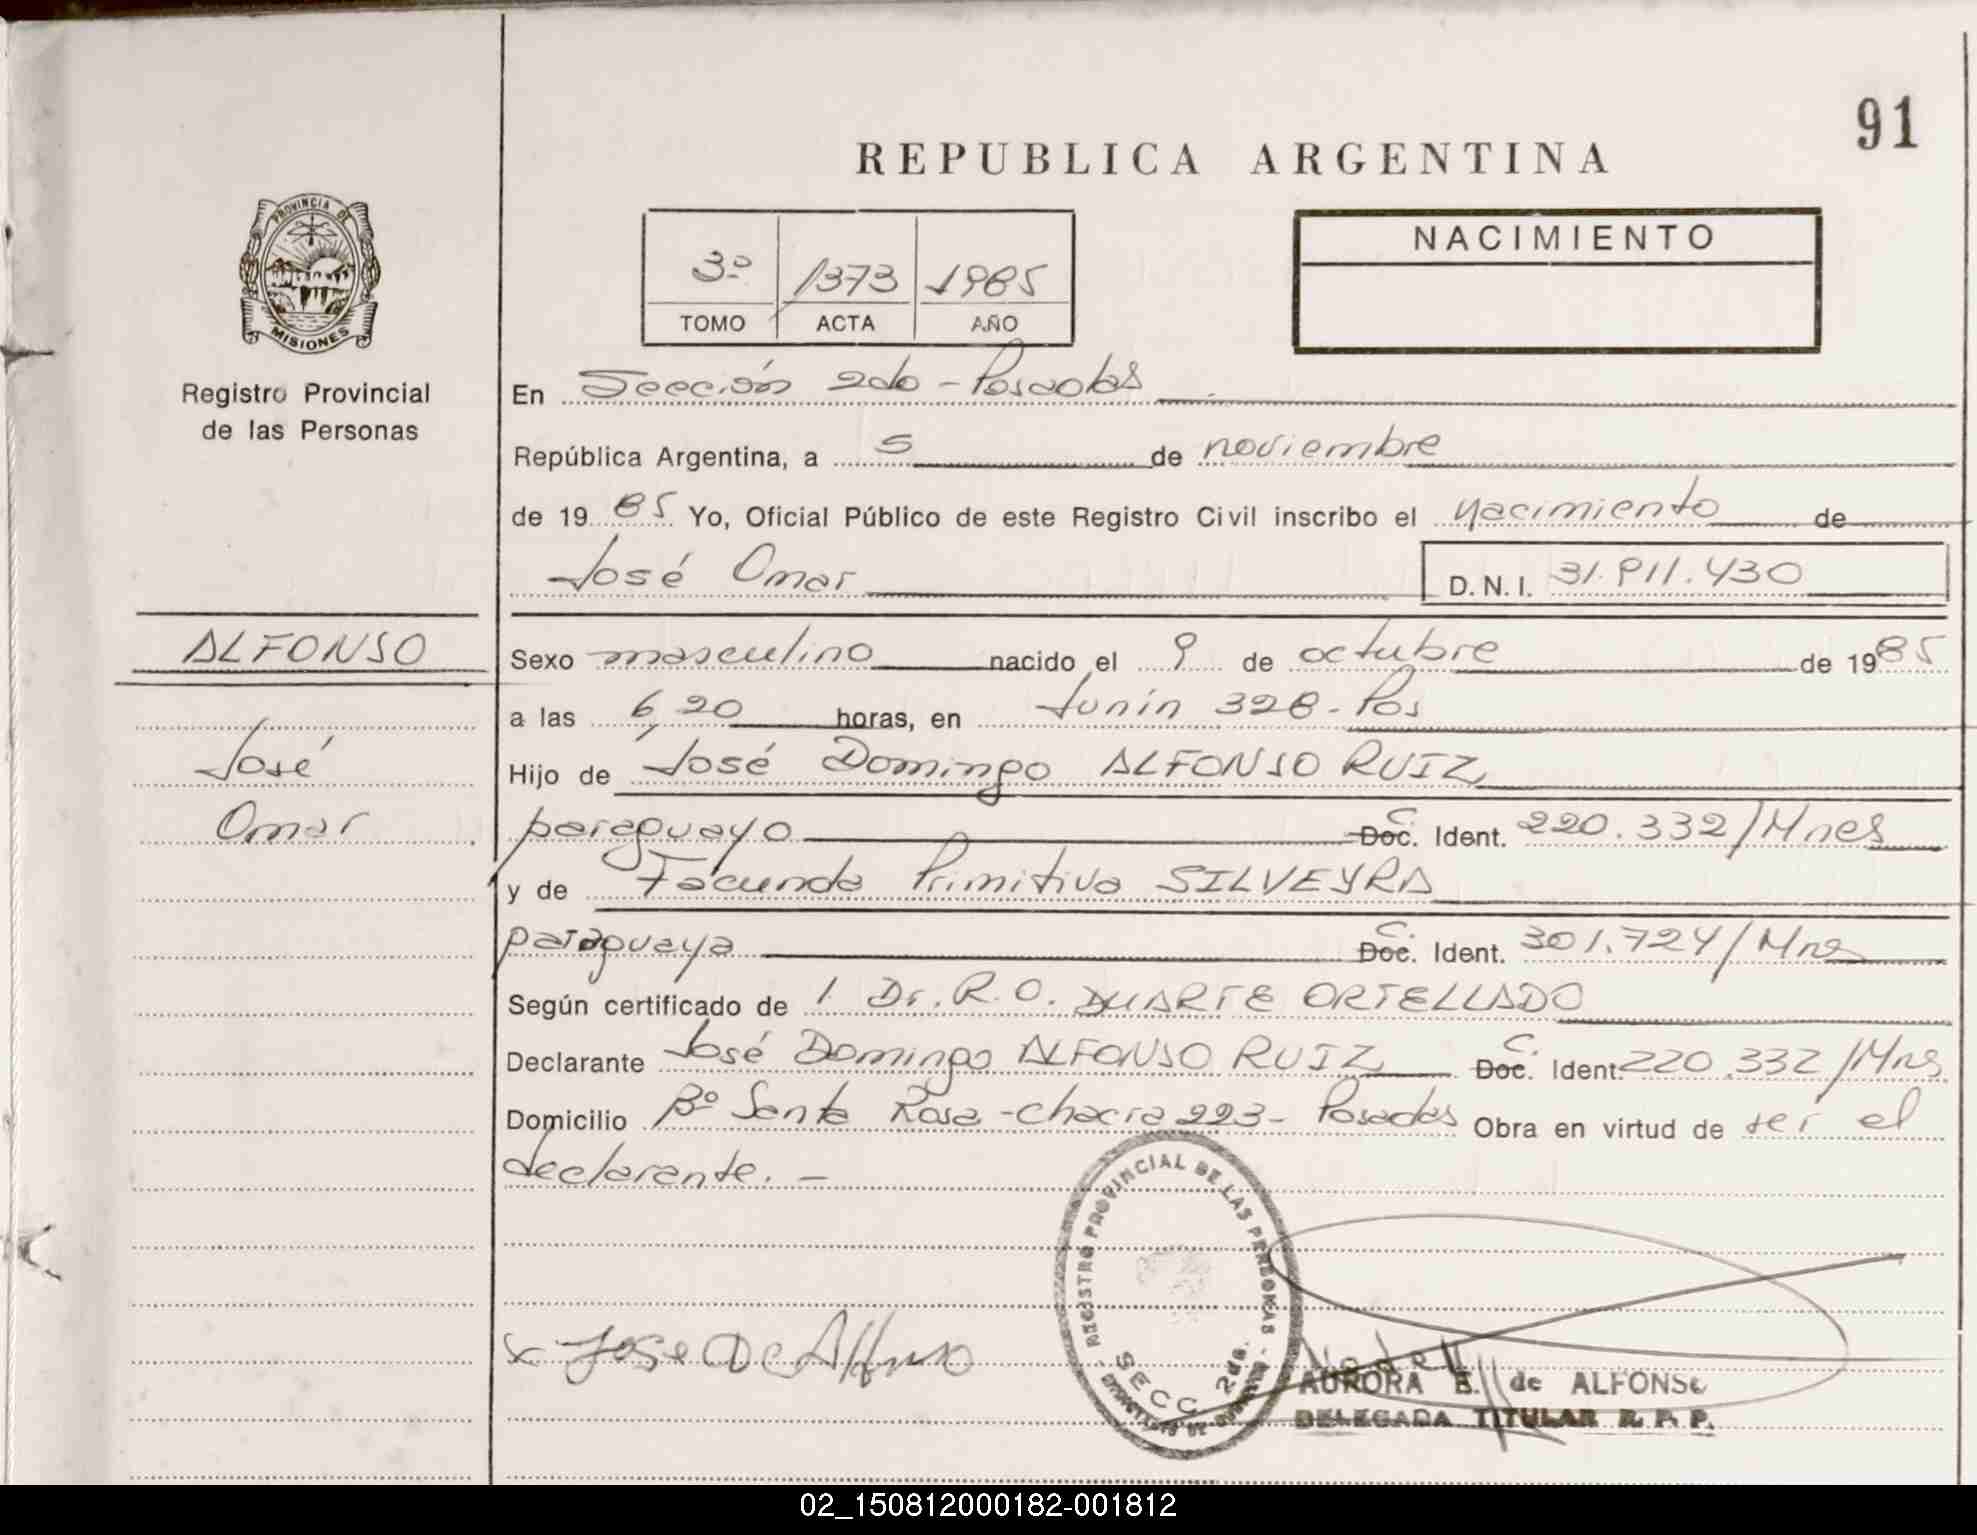 91
REPUBLICA ARGENTINA
PROVINCIA DE
MISIONES
Registro Provincial
de las Personas
3º 1373 1985
TOMO ACTA AÑO
NACIMIENTO
En Sección 2do - Posadas
República Argentina, a 5 de noviembre
de 19 85 Yo, Oficial Público de este Registro Civil inscribo el nacimiento de
José Omar D.N.I. 31.911.430
ALFONSO
José
Omar
Sexo masculino nacido el 9 de octubre de 19 85
a las 6,20 horas, en Junín 328 - Pos
Hijo de José Domingo ALFONSO RUIZ
paraguayo Doc. C. Ident. 220.332/Mnes
y de Facunda Primitiva SILVEYRA
paraguaya Doc. C. Ident. 301.724/Mns
Según certificado de 1. Dr. R. O. DUARTE ORTELLADO
Declarante José Domingo ALFONSO RUIZ Doc. C. Ident. 220.332/Mns
Domicilio Bº Santa Rosa - chacra 223 - Posadas Obra en virtud de ser el
declarante. -
REGISTRO PROVINCIAL DE LAS PERSONAS
SECC. 2da.
x Jose De Alfonso
AURORA E. de ALFONSO
DELEGADA TITULAR R. P. P.
02_150812000182-001812